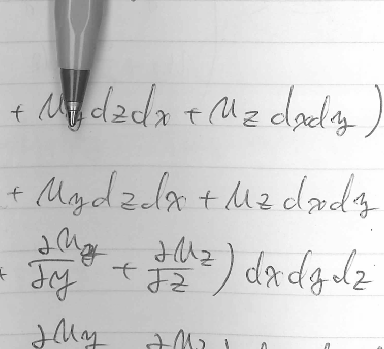 + u_y dzdx + u_z dxdy )
+ u_y dzdx + u_z dxdy
+ ∂u_y/∂y + ∂u_z/∂z ) dxdydz
∂u_y ∂u_z